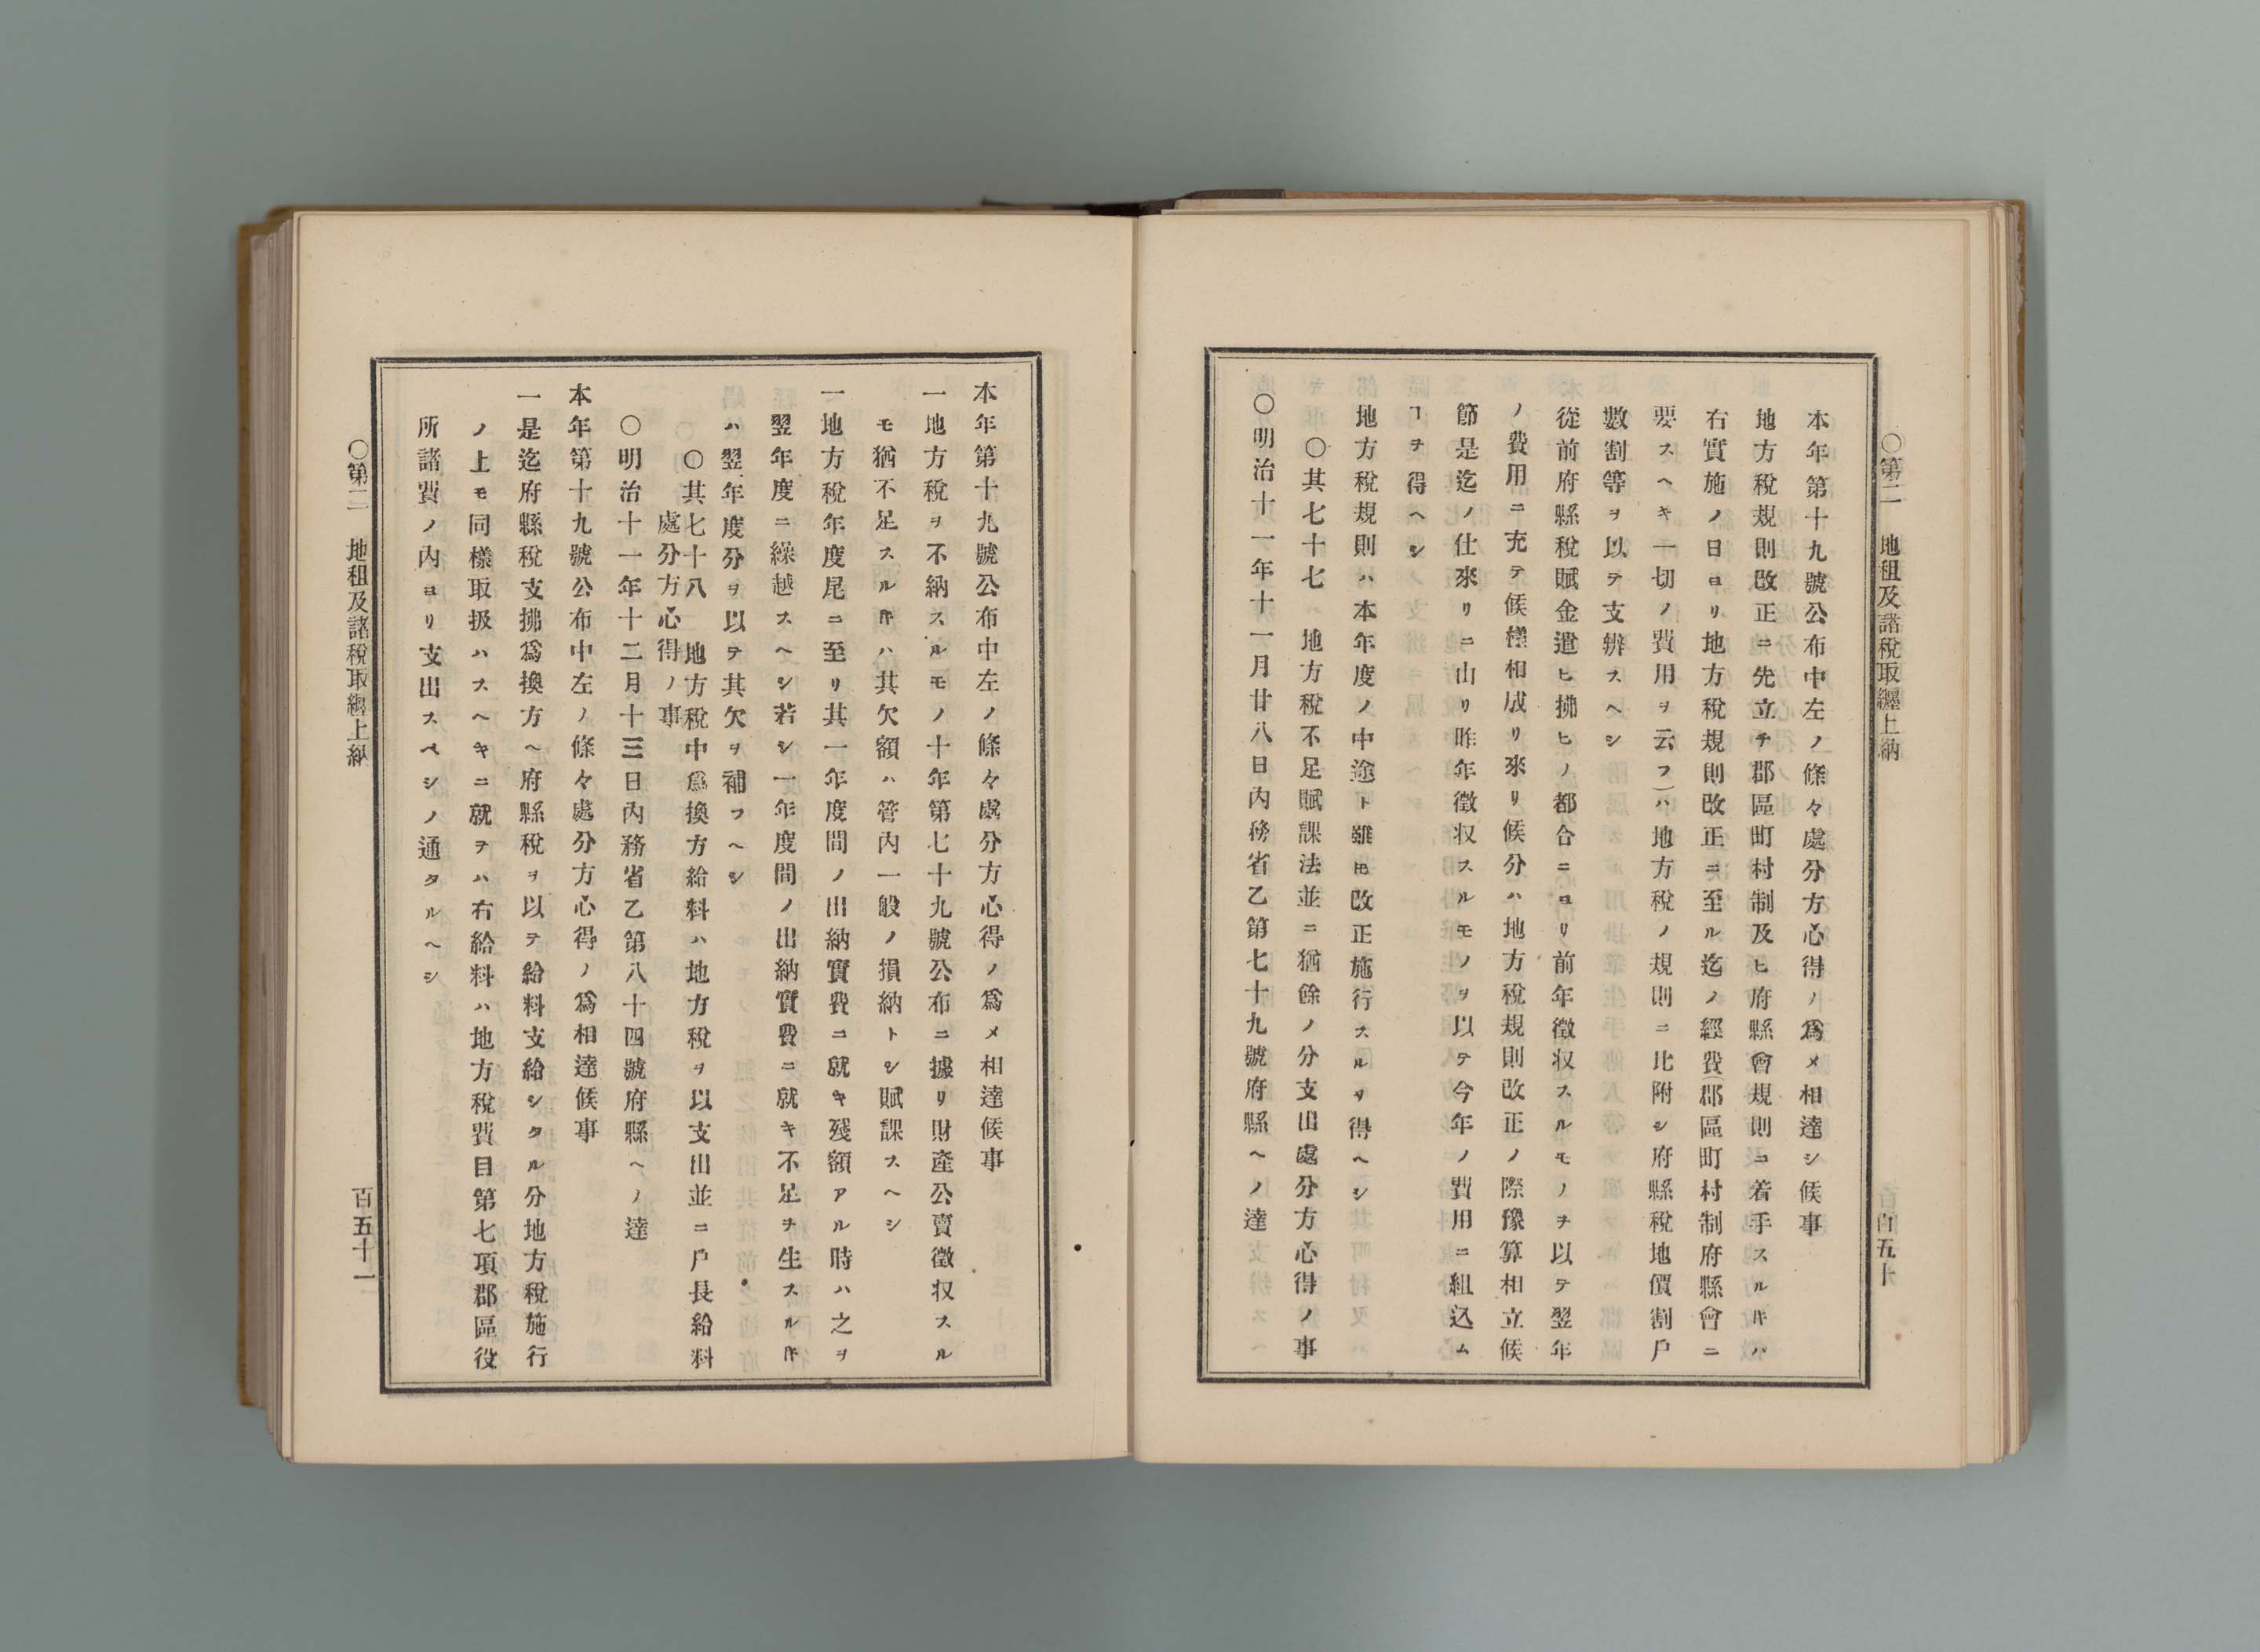 ○第二　地租及諸稅取纒上納
百五十
本年第十九號公布中左ノ條々處分方心得ノ爲メ相達シ候事
地方稅規則改正ニ先立チ郡區町村制及ヒ府縣會規則ニ着手スルㇳキハ
右實施ノ日ヨリ地方稅規則改正ニ至ル迄ノ經費(郡區町村制府縣會ニ
要スヘキ一切ノ費用ヲ云フ)ハ地方稅ノ規則ニ比附シ府縣稅地價割戶
數割等ヲ以テ支辨スヘシ
從前府縣稅賦金遣ヒ拂ヒノ都合ニヨリ前年徵収スルモノヲ以テ翌年
ノ費用ニ充テ候樣相成リ來リ候分ハ地方稅規則改正ノ際豫算相立候
節是迄ノ仕來リニ由リ昨年徵収スルモノヲ以テ今年ノ費用ニ組込ム
ヿヲ得ヘシ
地方稅規則ハ本年度ノ中途ト雖𪜈改正施行スルヲ得ヘシ
○其七十七　地方稅不足賦課法並ニ猶餘ノ分支出處分方心得ノ事
○明治十一年十一月廿八日內務省乙第七十九號府縣ヘノ達
本年第十九號公布中左ノ條々處分方心得ノ爲メ相達候事
一地方稅ヲ不納スルモノ十年第七十九號公布ニ據リ財產公賣徵収スル
モ猶不足スルㇳキハ其欠額ハ管內一般ノ損納トシ賦課スヘシ
一地方稅年度尾ニ至リ其一年度間ノ出納實費ニ就キ殘額アル時ハ之ヲ
翌年度ニ繰越スヘシ若シ一年度間ノ出納實費ニ就キ不足ヲ生スルㇳキ
ハ翌年度分ヲ以テ其欠ヲ補フヘシ
○其七十八　地方稅中爲換方給料ハ地方稅ヲ以支出並ニ戶長給料
處分方心得ノ事
○明治十一年十二月十三日內務省乙第八十四號府縣ヘノ達
本年第十九號公布中左ノ條々處分方心得ノ爲相達候事
一是迄府縣稅支拂爲換方ヘ府縣稅ヲ以テ給料支給シタル分地方稅施行
ノ上モ同樣取扱ハスヘキニ就テハ右給料ハ地方稅費目第七項郡區役
所諸費ノ內ヨリ支出スベシノ通タルヘシ
○第二　地租及諸稅取纒上納
百五十一